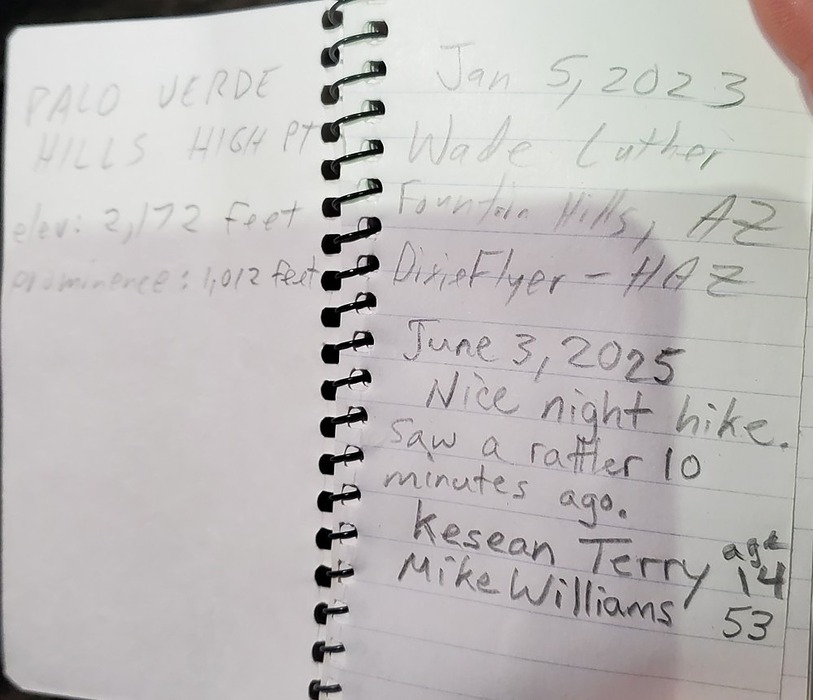 PALO VERDE
HILLS HIGH PT
elev: 2,172 Feet
prominence: 1,012 feet
Jan 5, 2023
Wade Luther
Fountain Hills, AZ
DixieFlyer - HAZ
June 3, 2025
Nice night hike.
Saw a rattler 10
minutes ago.
Kesean Terry age 14
Mike Williams 53